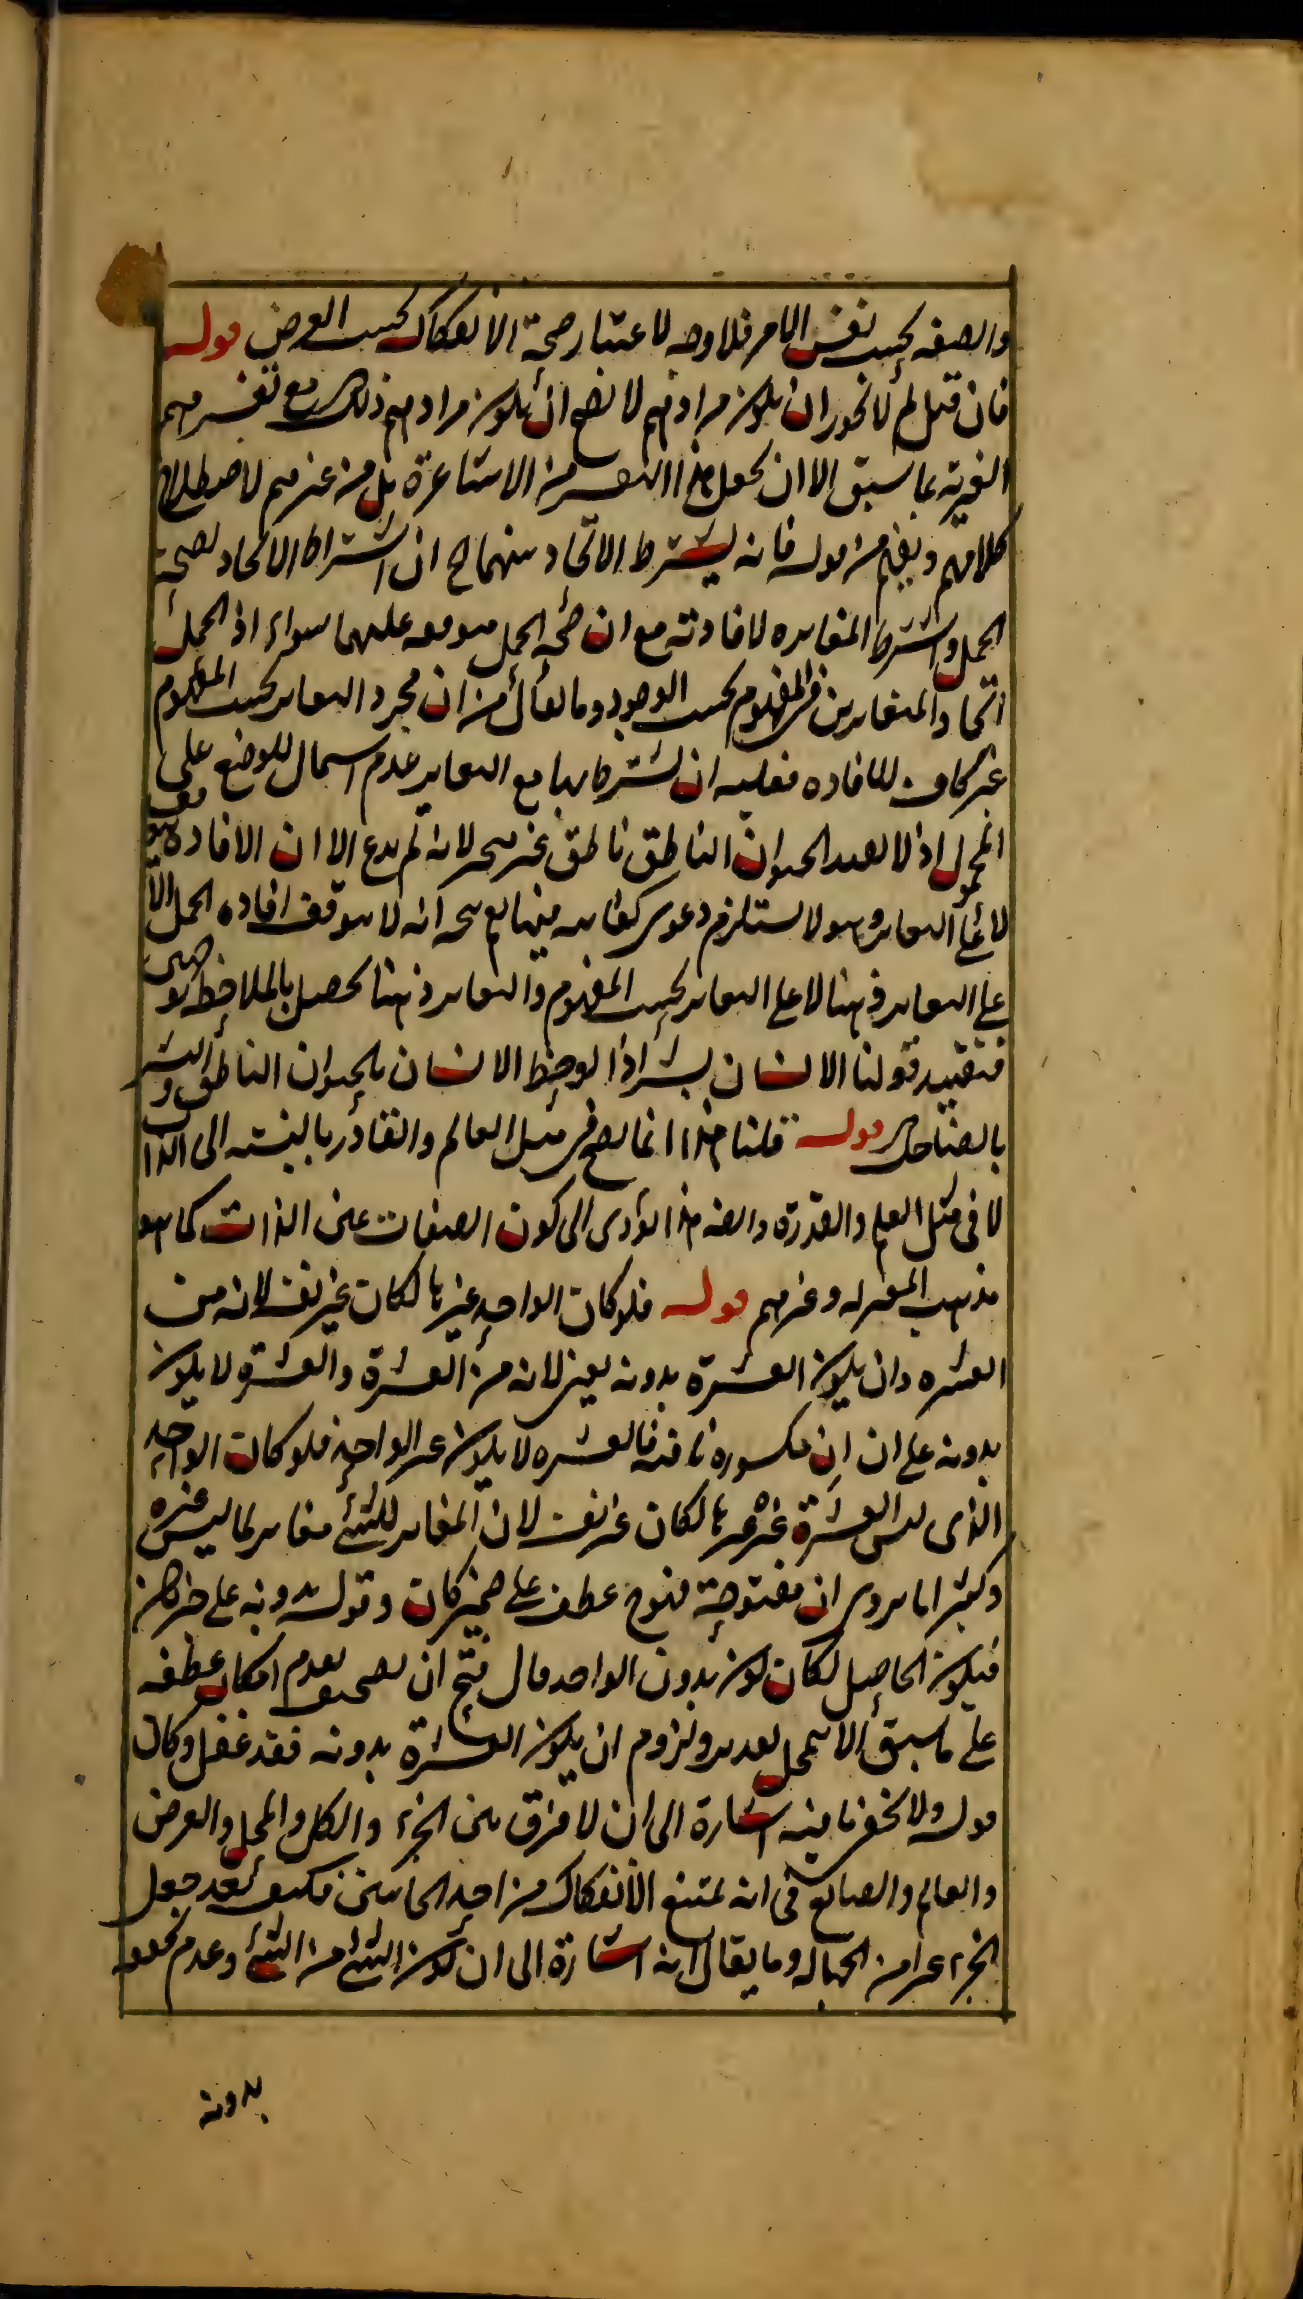 والصفة بحسب نفس الامر فلا وجه لاعتبار صحة الانفكاك بحسب الفرض قوله
فان قيل لم لا يجوز ان يكون مرادهم لا يصح ان يكون مرادهم ذلك مع تفسيرهم
الغيرية بما سبق الا ان يجعل هذا التفسير من الاشاعرة بل من غيرهم لاصطلاح
كلامهم ويفهم من قوله فانه يشترط الاتحاد بينهما ح ان اشتراط الاتحاد لصحة
الحمل واشتراط المغايرة لافادته مع ان صحة الحمل موقوفة عليهما سواء اذ الحمل
اتحاد المتغايرين في المفهوم بحسب الوجود وما يقال من ان مجرد التغاير بحسب المفهوم
غير كاف للافادة فعليه ان يشترط ايها مع التغاير عدم اشتمال الموضوع على
المحمول اذ لا يفيد الحيوان الناطق ناطق غير متجه لانه لم يدع الا ان الافادة موقو
لا على التغاير وهو لا يستلزم دعوى كفايته فيها نعم يتجه انه لا يتوقف افادة الحمل الا
على التغاير ذهنا لا على التغاير بحسب المفهوم والتغاير ذهنا يحصل بالملاحظة بوجهين
فتفيد قولنا الانسان بشر اذا لوحظ الانسان بالحيوان الناطق والبشر
بالضاحك قوله قلنا هذا انما يصح في مثل العالم والقادر بالنسبة الى الذات
لا في مثل العلم والقدرة وايضا هذا يؤدى الى كون الصفات عين الذات كما هو
مذهب المعتزلة وغيرهم قوله فلو كان الواحد غيرها لكان غير نفسه لانه من
العشرة وان يكون العشرة بدونه يعنى لانه من العشرة والعشرة لا يكون
بدونه على ان إن مكسورة نافية فالعشرة لا يكون غير الواحد فلو كان الواحد
الذى ليس العشرة غيره غيرها لكان غير نفسه لان المغاير للشئ مغاير لما ليس غيره
وكثيرا ما يروى ان مفتوحة فتوهم عطف على ضمير كان وقوله بدونه على خبر كان
فيكون الحاصل لكان يكون بدون الواحد قال فتح ان تصحيف لعدم امكان عطفه
على ما سبق الا بتمحل بعد يرو لزوم ان يكون العشرة بدونه فقد غفل وكان
قوله ولا يخفى ما فيه اشارة الى ان لا فرق بين الجزء والكل والمحل والعرض
والعالم والصانع فى انه يمتنع الانفكاك من احد الجانبين فكيف يعد جعل
الجزء غيرا من الجهالة وما يقال انه اشارة الى ان كون الشئ من الشئ وعدم تحققه
بدونه